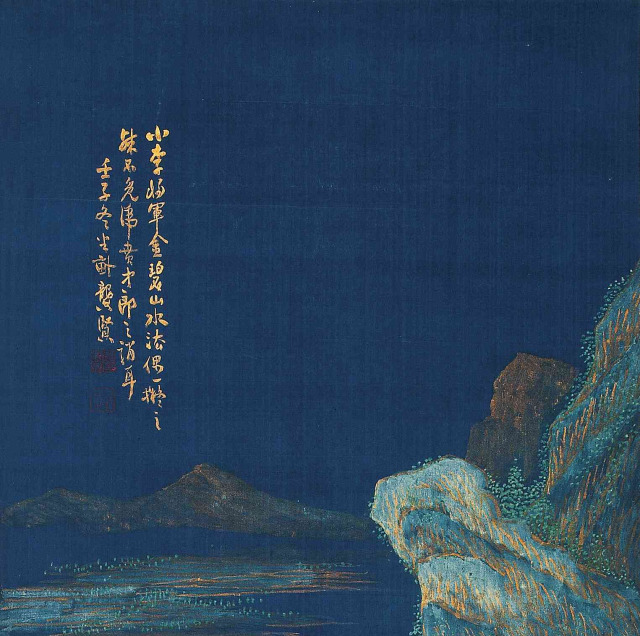 小李将軍金碧山水法偶一擬之
殊不免才郎之誚耳
壬子冬半畝龔賢